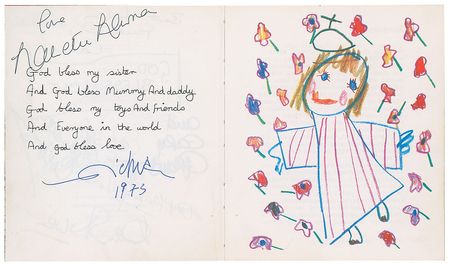 love
God bless my sister
And God bless Mummy And daddy
God bless my toys And friends
And Everyone in the world
And god bless love
1973